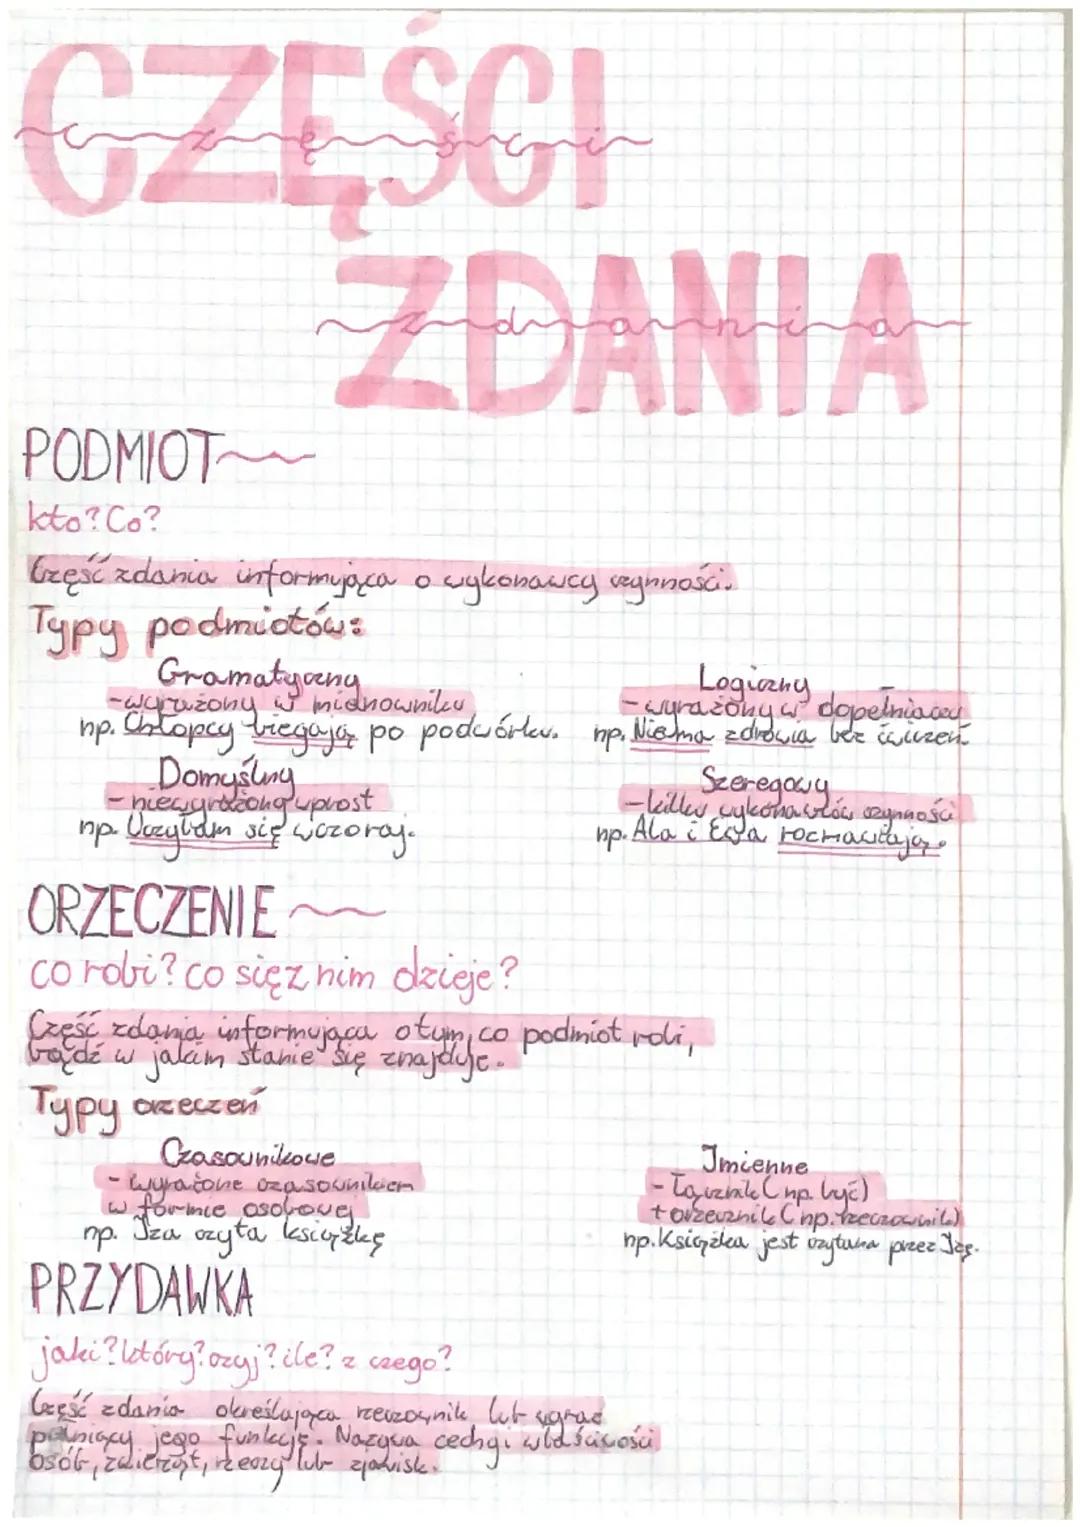 CZĘŚCI
części
ZDANIA
zdania
PODMIOT
kto? Co?
Część zdania informująca o wykonawcy czynności.
Typy podmiotów:
Gramatyczny
- wyrażony w mianowniku
np. Chłopcy biegają po podwórku.
Logiczny
- wyrażony w dopełniaczu
np. Nie ma zdrowia bez ćwiczeń.
Domyślny
- niewyrażony wprost
np. Uczyłam się wczoraj.
Szeregowy
- kilku wykonawców czynności
np. Ala i Ewa rozmawiają.
ORZECZENIE
co robi? co się z nim dzieje?
Część zdania informująca o tym, co podmiot robi,
bądź w jakim stanie się znajduje.
Typy orzeczeń
Czasownikowe
- wyrażone czasownikiem
w formie osobowej
np. Iza czyta książkę
Imienne
- łącznik (np. być)
+ orzecznik (np. rzeczownik)
np. Książka jest czytana przez Izę.
PRZYDAWKA
jaki? który? czyj? ile? z czego?
Część zdania określająca rzeczownik lub wyraz
pełniący jego funkcję. Nazywa cechy i właściwości
osób, zwierząt, rzeczy lub zjawisk.